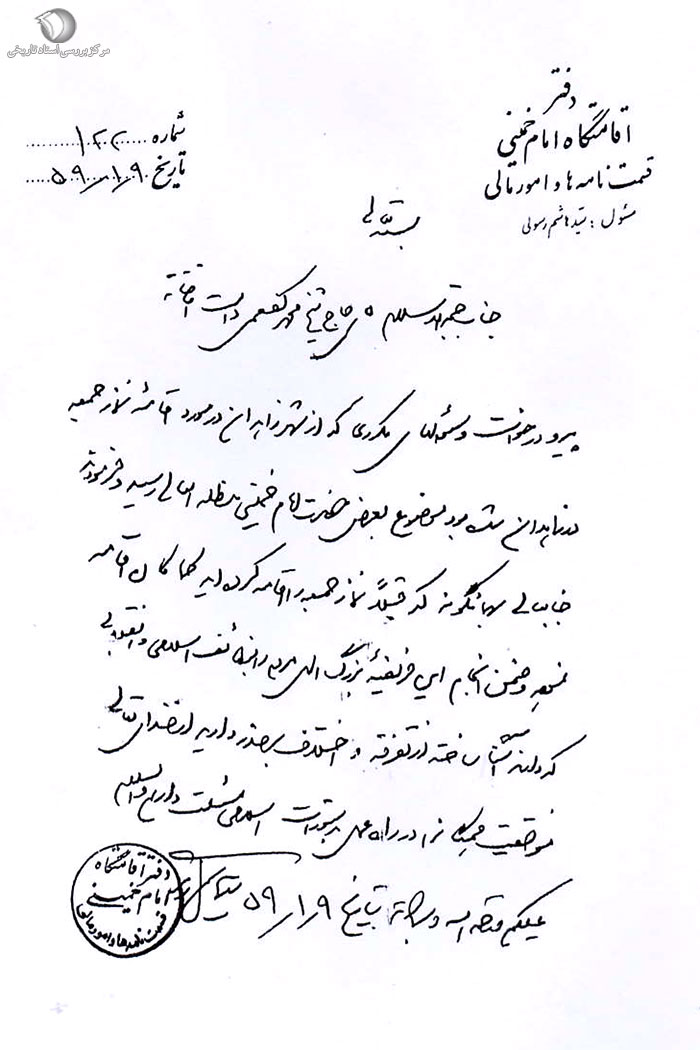 مرکز بررسی اسناد تاریخی
دفتر
اقامتگاه امام خمینی
قسمت نامه ها و امور مالی
مسئول : سید هاشم رسولی
شماره ۱۲۲
تاریخ ۵۹/۱/۹
بسمه تعالی
جناب حجةالاسلام آقای حاج شیخ محمد کفعمی دامت افاضاته
پیرو درخواست و سئوالهای مکرری که از شهر زاهدان در مورد اقامهٔ نماز جمعه
در زاهدان شده بود موضوع بعرض حضرت امام خمینی مدظله العالی رسید و فرمودند
جنابعالی همانگونه که قبلاً نماز جمعه را اقامه کرده اید کماکان اقامه
نموده و ضمن انجام این فریضهٔ بزرگ الهی مردم را بوظائف اسلامی و انقلابی
که دارند آشنا ساخته از تفرقه و اختلاف برحذر دارید از خدای تعالی
موفقیت همگان را در راه عمل بدستورات اسلامی مسئلت داریم والسلام
علیکم ورحمة الله وبرکاته بتاریخ ۵۹/۱/۹
دفتر اقامتگاه
امام خمینی
قسمت نامه ها و امور مالی